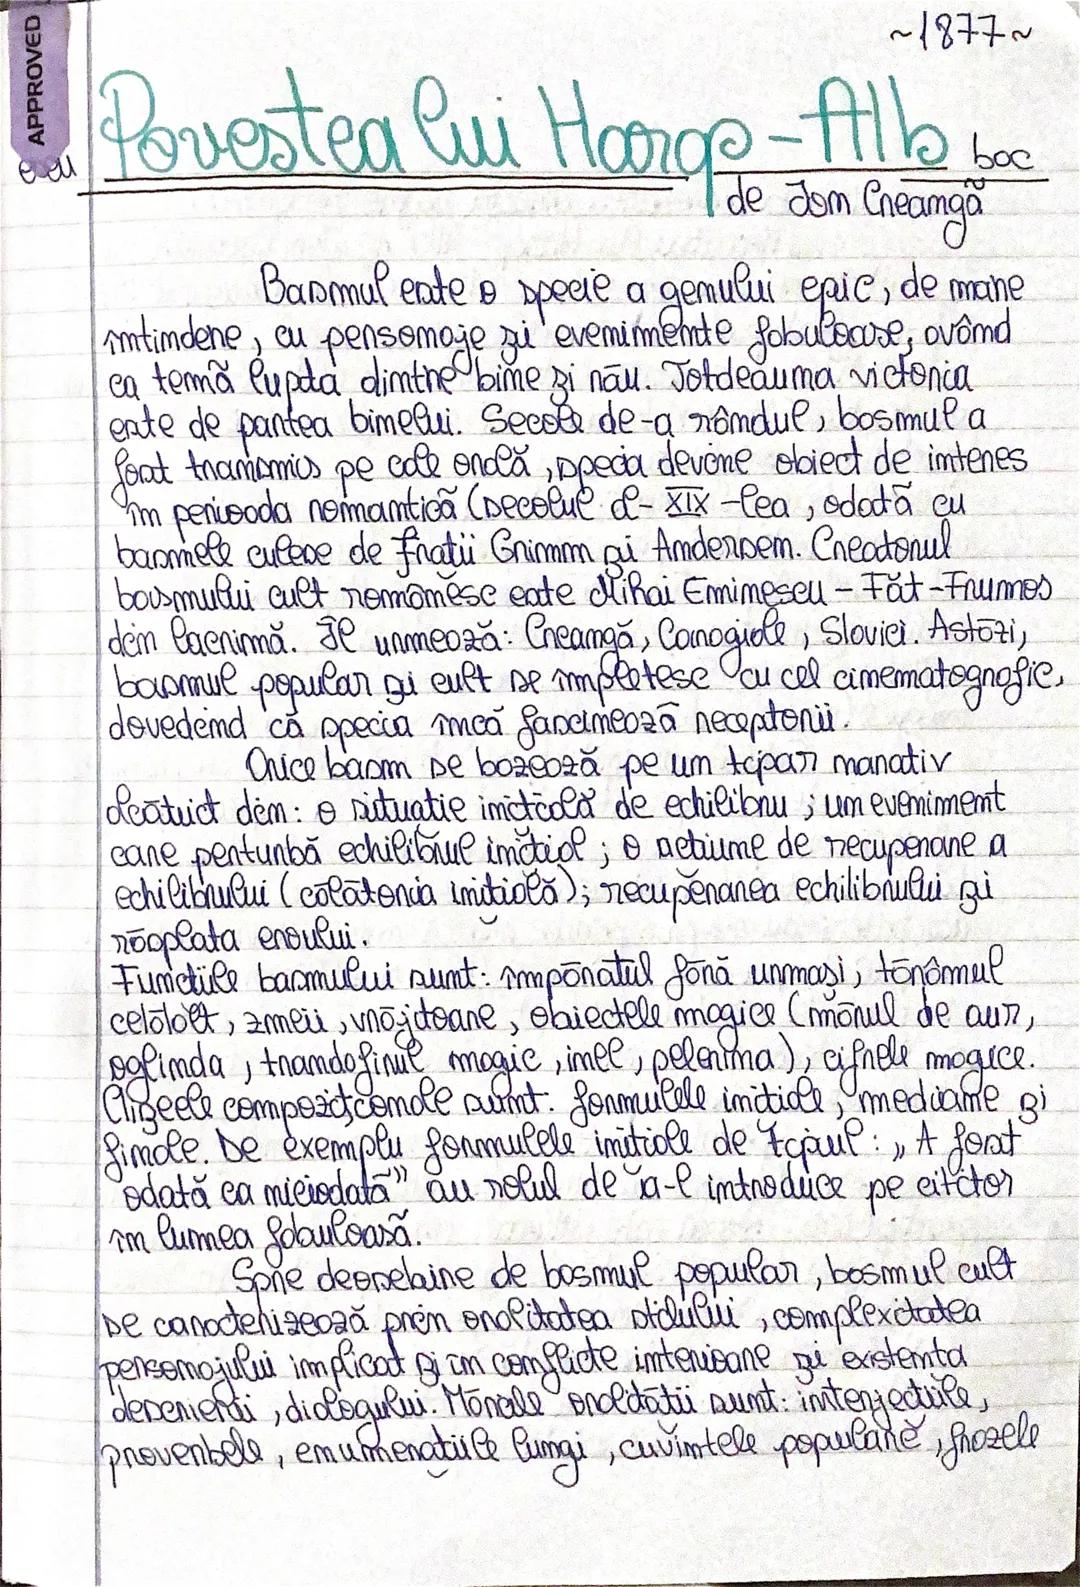 ~1877~
APPROVED
Povestea lui Harap-Alb
bac
eseu
de Ion Creangă
Basmul este o specie a genului epic, de mare
întindere, cu personaje și evenimente fabuloase, având
ca temă lupta dintre bine și rău. Totdeauna victoria
este de partea binelui. Secole de-a rândul, basmul a
fost transmis pe cale orală, specia devine obiect de interes
în perioada romantică (secolul al-XIX-lea, odată cu
basmele culese de frații Grimm și Andersen. Creatorul
basmului cult românesc este Mihai Eminescu - Făt-Frumos
din lacrimă. Îl urmează: Creangă, Caragiale, Slavici. Astăzi,
basmul popular și cult se împletesc cu cel cinematografic,
dovedind că specia încă fascinează receptorii.
Orice basm se bazează pe un tipar narativ
alcătuit din: o situație inițială de echilibru; un eveniment
care perturbă echilibrul inițial; o acțiune de recuperare a
echilibrului (călătoria inițială); recuperarea echilibrului și
răsplata eroului.
Funcțiile basmului sunt: împăratul fără urmași, tărâmul
celălalt, zmeii, vrăjitoare, obiectele magice (mărul de aur,
oglinda, trandafirul magic, inel, pelerina), cifrele magice.
Clișeele compoziționale sunt: formulele inițiale, mediane și
finale. De exemplu formulele inițiale de tipul: „A fost
odată ca niciodată” au rolul de a-l introduce pe cititor
în lumea fabuloasă.
Spre deosebire de basmul popular, basmul cult
se caracterizează prin oralitatea stilului, complexitatea
personajului implicat și în conflicte interioare și existența
descrierii, dialogului. Mărcile oralității sunt: interjecțiile,
proverbele, enumerațiile lungi, cuvintele populare, frazele